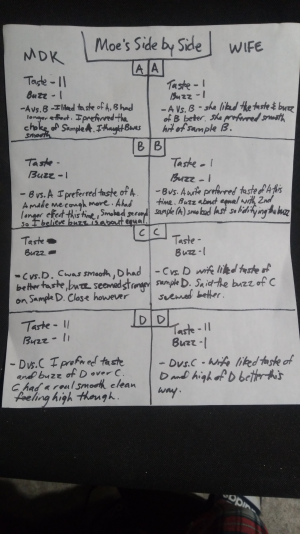 Moe's Side by Side
MDK
WIFE
A
A
Taste - II
Buzz - I
- A vs. B - I liked taste of A. B had
longer effect. I preferred the
choke of Sample A. I thought B was
smooth
Taste - I
Buzz - I
- A vs B - she liked the taste & buzz
of B better. She preferred smooth
hit of sample B.
B
B
Taste -
Buzz - I
- B vs. A I preferred taste of A
A made me cough more. A had
longer effect this time, smoked second
so I believe buzz is about equal
Taste - I
Buzz - I
- B vs. A wife preferred taste of A this
time. Buzz about equal with 2nd
sample (A) smoked last solidifying the buzz
C
C
Taste
Buzz
- C vs. D. C was smooth, D had
better taste, buzz seemed stronger
on Sample D. Close however
Taste -
Buzz - I
- C vs. D wife liked taste of
sample D. Said the buzz of C
seemed better.
D
D
Taste - II
Buzz - II
- D vs. C I prefered taste
and buzz of D over C.
C had a real smooth clean
feeling high though.
Taste - II
Buzz - I
- D vs. C - Wife liked taste of
D and high of D better this
way.